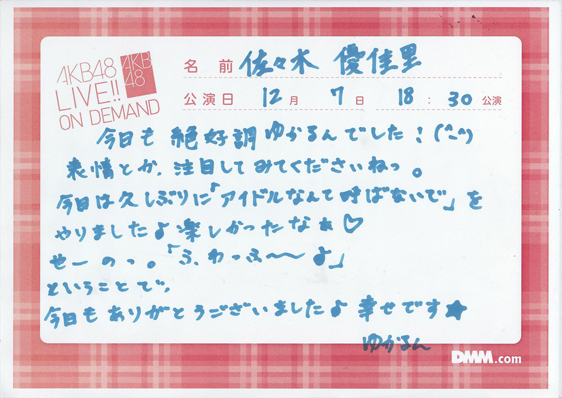 AKB48
LIVE!!
ON DEMAND
AKB
48
名 前 佐々木 優佳里
公演日 12月 7日 18:30公演
今日も 絶好調ゆかるんでした！(^-^)
表情とか、注目してみてくださいねっ。
今日は久しぶりに「アイドルなんて呼ばないで」を
やりましたよ楽しかったなぁ♡
せーのっ。「ふ、わっふ〜〜よ」
ということで、
今日もありがとうございましたよ 幸せです★
ゆかるん
DMM.com